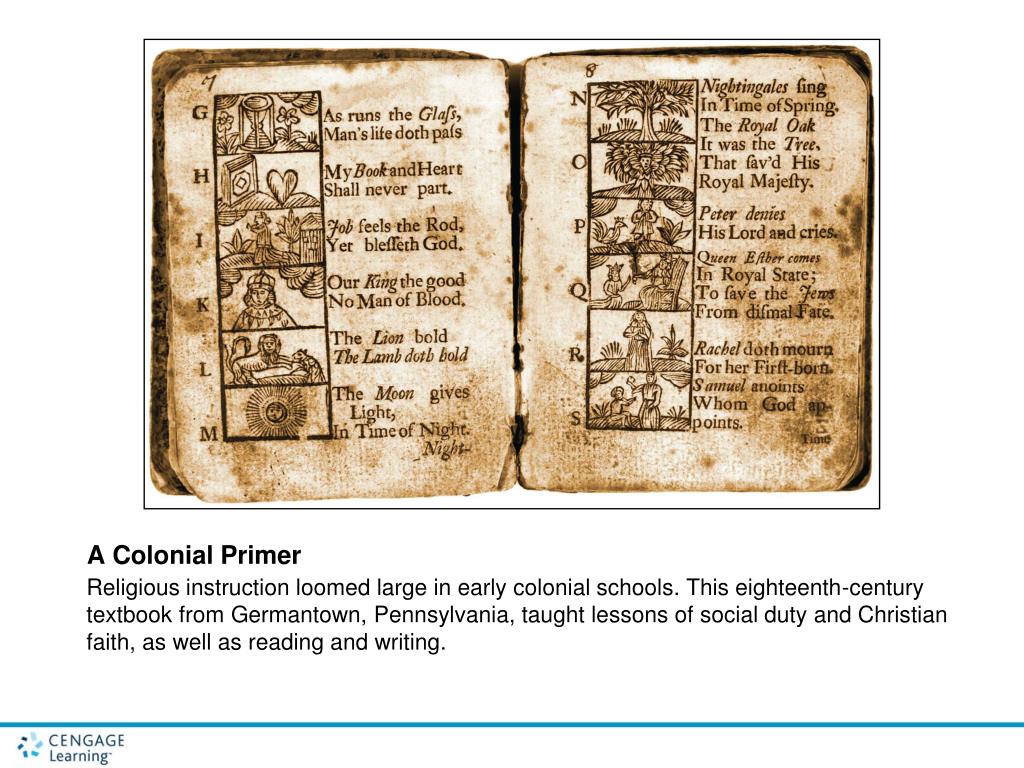 7
G
As runs the Glaſs,
Man's life doth paſs
H
My Book and Heart
Shall never part.
I
Job feels the Rod,
Yet bleſſeth God.
K
Our King the good
No Man of Blood.
L
The Lion bold
The Lamb doth hold
M
The Moon gives
Light,
In Time of Night.
Night-
8
N
Nightingales ſing
In Time of Spring.
O
The Royal Oak
It was the Tree,
That ſav'd His
Royal Majeſty.
P
Peter denies
His Lord and cries.
Q
Queen Eſther comes
In Royal State;
To ſave the Jews
From diſmal Fate.
R
Rachel doth mourn
For her Firſt-born.
S
Samuel anoints
Whom God ap-
points.
Time
A Colonial Primer
Religious instruction loomed large in early colonial schools. This eighteenth-century
textbook from Germantown, Pennsylvania, taught lessons of social duty and Christian
faith, as well as reading and writing.
CENGAGE
Learning™